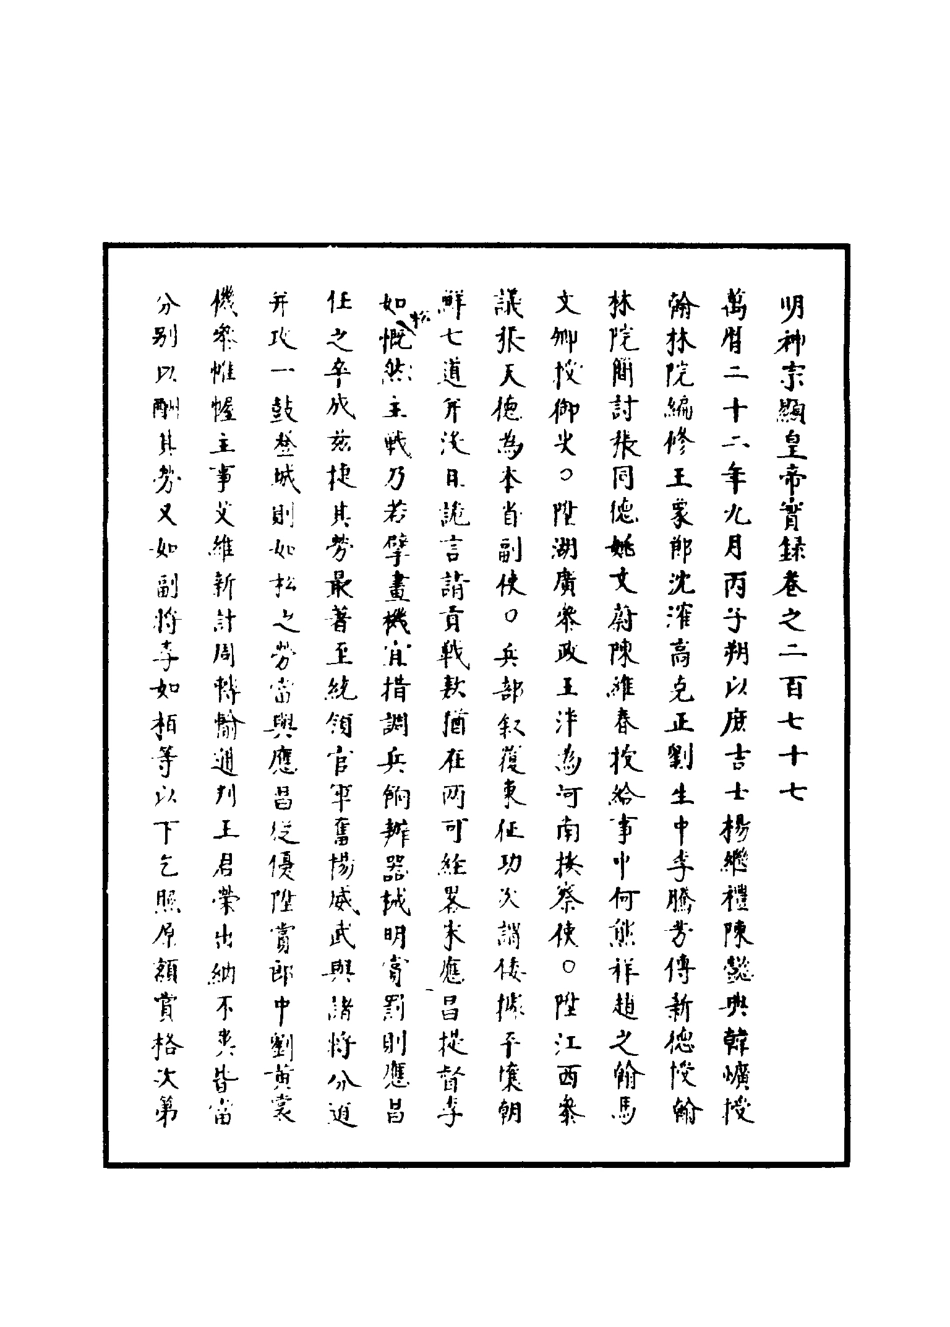 明神宗顯皇帝實録卷之二百七十七
萬曆二十二年九月丙子朔以庶吉士楊繼禮陳懿典韓爌授
翰林院編修王象節沈㴶高克正劉生中李騰芳傅新德授翰
林院簡討張同德姚文蔚陳維春授給事中何熊祥趙之翰馬
文卿授御史○陞湖廣叅政王泮為河南按察使○陞江西叅
議張天德為本省副使○兵部叙覆東征功次謂倭據平壤朝
鮮七道并沒日詭言請貢戰欵猶在兩可經畧宋應昌提督李
如松慨然主戰乃若擘畫機宜措調兵餉辦器械明賞罰則應昌
任之卒成兹捷其勞最著至統領官軍奮揚威武與諸將分道
并攻一鼓登城則如松之勞當與應昌從優陞賞郎中劉黄裳
機叅帷幄主事艾維新計周轉輸通判王君榮出納不爽皆當
分别以酬其勞又如副將李如栢等以下乞照原額賞格次第